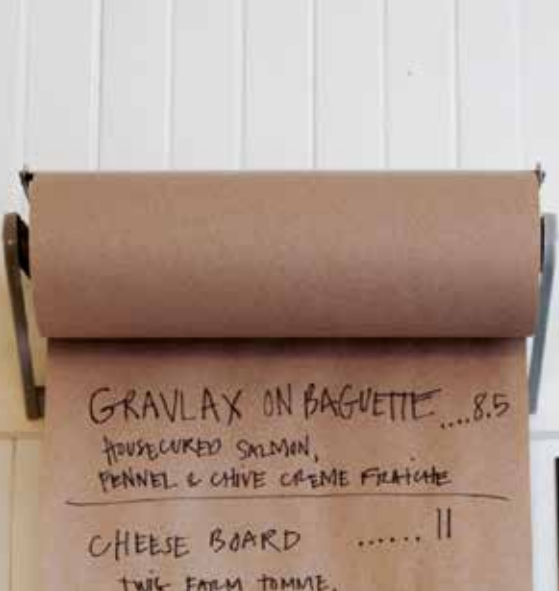 GRAVLAX ON BAGUETTE....8.5
HOUSECURED SALMON,
FENNEL & CHIVE CREME FRAICHE
CHEESE BOARD ...... 11
TWIG FARM TOMME,